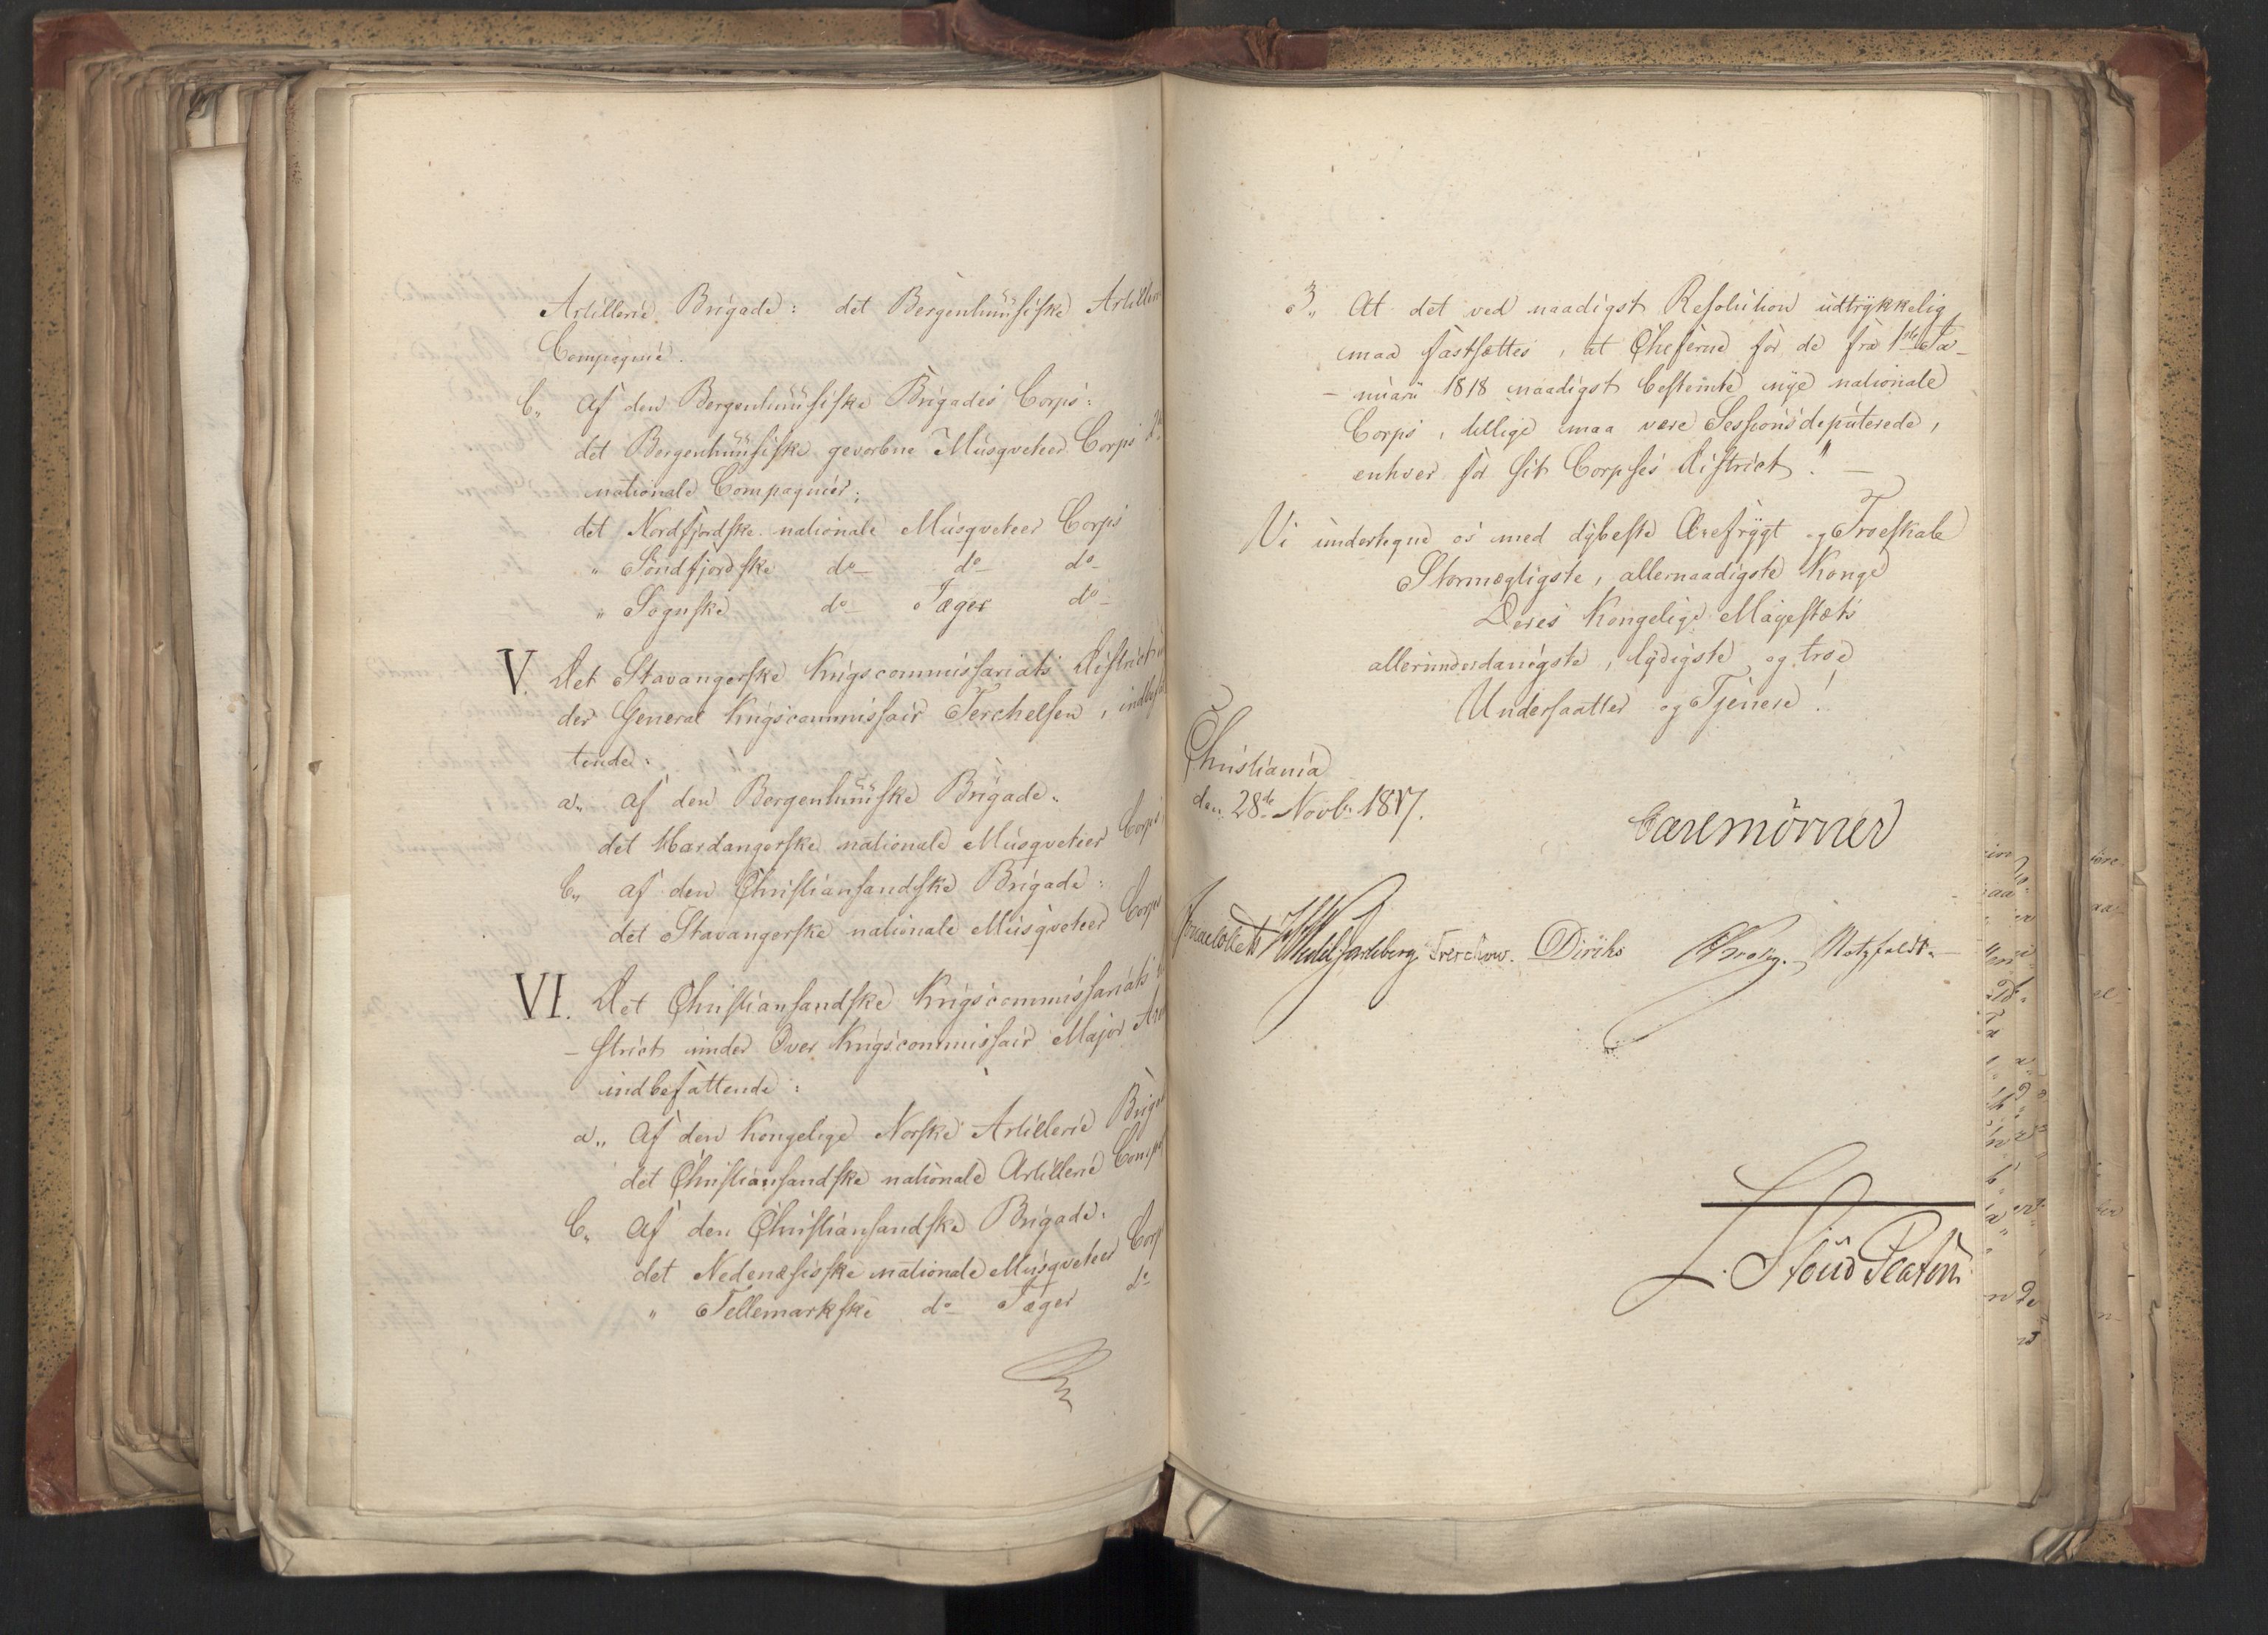 Artillerie Brigade: det Bergenhuusiske Artillerie
Compagnie.
b., af den Bergenhuusiske Brigades Corps:
det Bergenhuusiske gevorbne Musqveteer Corps 2de
nationale Compagnier;
det Nordfjordske nationale Musqveteer Corps
" Söndfjordske do do do
" Sognske do Jæger do
V. Det Stavangerske Krigscommissariats District un
der General Krigscommissair Terchelsen, indbefat
tende:
a., af den Bergenhuuske Brigade.
det Hardangerske nationale Musqveteer Corps
b., af den Christiansandske Brigade:
det Stavangerske nationale Musqveteer Corps
VI. Det Christiansandske Krigscommissariats
- strict under Over Krigscommissair Major
indbefattende:
a., Af den Kongelige Norske Artillerie Briga
det Christiansandske nationale Artillerie Comp
b., Af den Christiansandske Brigade.
det Nedenæsiske nationale Musqveteer Corp
" Tellemarkske do Jæger do
3., At det ved naadigst Resolution udtrykkelig
maa fastsættes, at Cheferne for de fra 1ste Ja-
- nuarii 1818 naadigst bestemte nye nationale
Corps, tillige maa være Sessionsdeputerede,
enhver for sit Corpses District." —
Vi undertegne os med dybeste Ærefrygt og Troeskab
Stormægtigste, allernaadigste Konge
Deres Kongelige Majestæts
allerunderdanigste, lydigste og troe
Undersaatter og Tjenere!
Christiania
den 28de Novbr 1817.
Carl Mörner
Sommerfeldt HWedelJarlsberg Treschow. Diriks Krog. Motzfeldt.
L. Stoud Platou